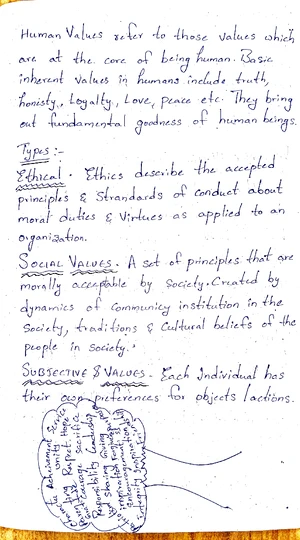 Human Values refer to those values which
are at the core of being human. Basic
inherent values in humans include truth,
honisty, Loyalty, Love, peace etc. They bring
out fundamental goodness of human beings.
Types :-
Ethical. Ethics describe the accepted
principles & Strandards of conduct about
moral duties & Virtues as applied to an
organization.
SOCIAL VALUES. A set of principles that are
morally acceptable by society. Created by
dynamics of communicy institution in the
Society, traditions & Cultural beliefs of the
people in society.
SUBJECTIVE & VALUES. Each Individual has
their own preferences for objects / actions.
Achievement
unity
Respect Hope
Courage sacrifice
Responsibility Leadership
sharing Giving
inspiration
Integrity